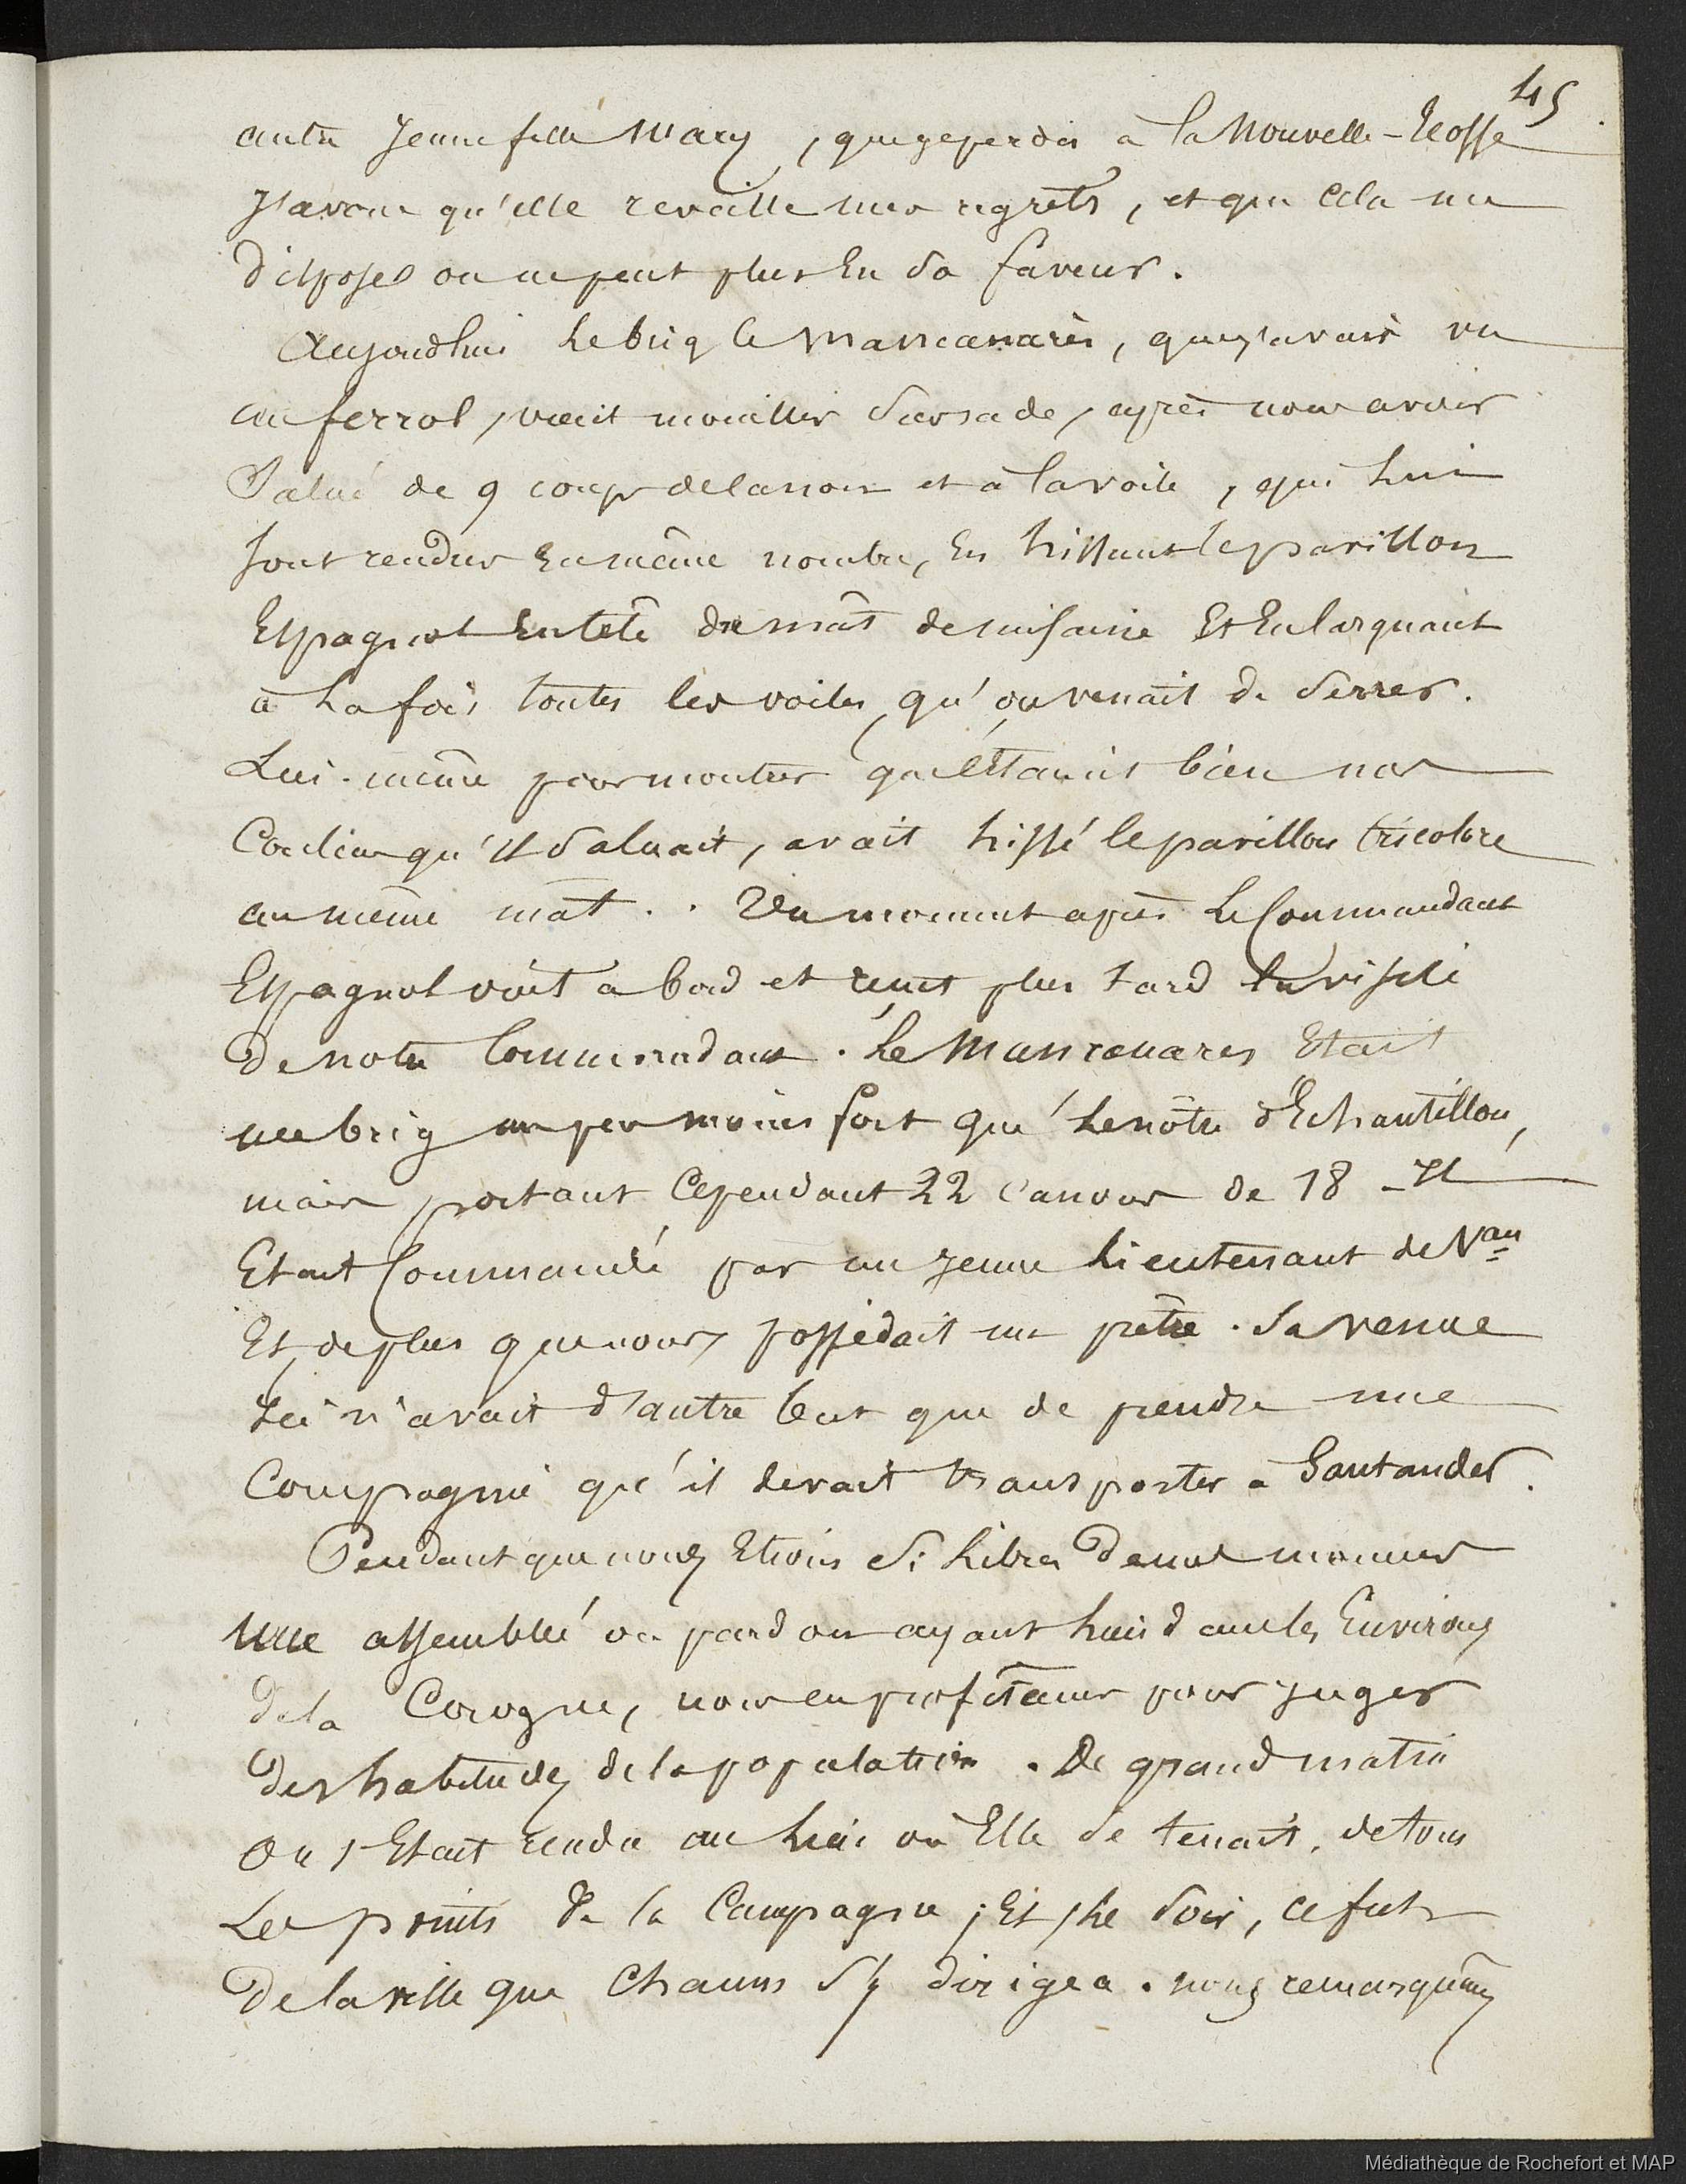 45
autre Jeune fille Mary, que je perdis à la Nouvelle-Ecosse
J'avoue qu'elle reveille mes regrets, et que cela me
dispose on ne peut plus En sa faveur.
Aujourd'hui Le brig le Mancanarès, que j'avais vu
au ferrol, vient mouiller Sur rade, après nous avoir
Salué de 9 coups de canon et à la voile, qui Lui
sont rendus En même nombre, En hissant le pavillon
Espagnol En tête du mât de misaine Et En larguant
à La fois toutes les voiles, qu'on venait de Serrer.
Lui-même pour montrer que c'étaient bien nos
Couleurs qu'il Saluait, avait hissé le pavillon tricolore
au même mât. . Un moment après Le Commandant
Espagnol vint à bord et reçut plus tard la visite
De notre Commandant. Le Mancanares Etait
un brig un peu moins fort que Le nôtre d'Echantillon,
mais portant Cependant 22 Canons de 18 - Il
Etait Commandé par un Jeune Lieutenant de Vau
Et, de plus que nous, possédait un prêtre. Sa venue
Ici n'avait d'autre but que de prendre une
Compagnie qu'il devait transporter à Santander.
Pendant que nous Etions Si Libres De nos momens
Une assemblée ou pardon ayant Lieu dans les Environs
De la Corogne, nous en profitâmes pour Juger
Des habitudes de la population. De grand matin
On s'Etait rendu au Lieu où Elle Se tenait, de tous
Les points De la Campagne; Et, Le Soir, ce fut
De la ville que Chacun S'y dirigea. nous remarquâmes
Médiathèque de Rochefort et MAP